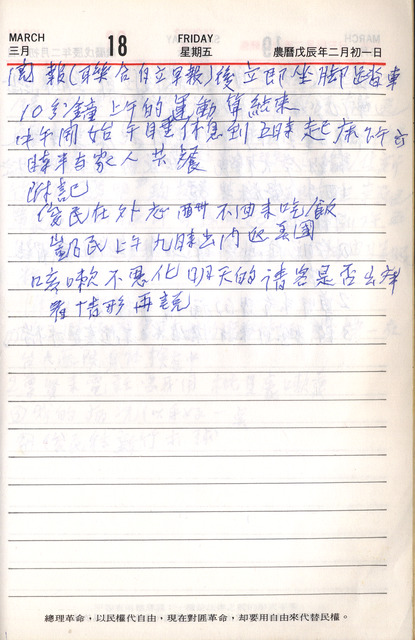 MARCH 18 FRIDAY
三月 星期五 農曆戊辰年二月初一日
閱報(聯合自立早報)後立即坐腳踏車
10分鐘上午的運動算結束
中午開始午睡休息到五時起床
時半與家人共餐
附記
民在外 不回來吃飯
凱民上午九時出 返美國
咳嗽不惡化明天的請客是否出
看情形再說
總理革命，以民權代自由，現在對匪革命，却要用自由來代替民權。